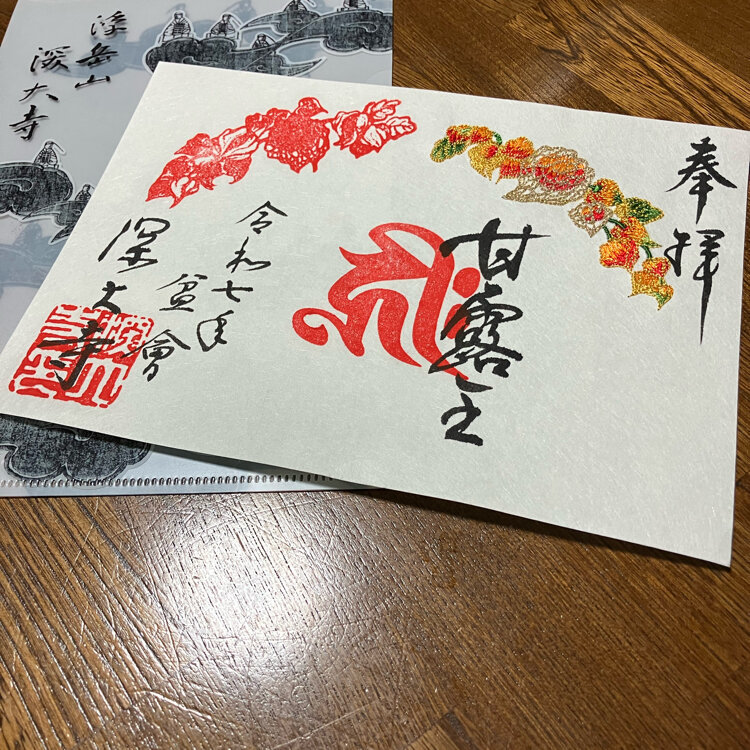 奉拝
甘露王
令和七年
盆會
深大寺
浮岳山
深大寺